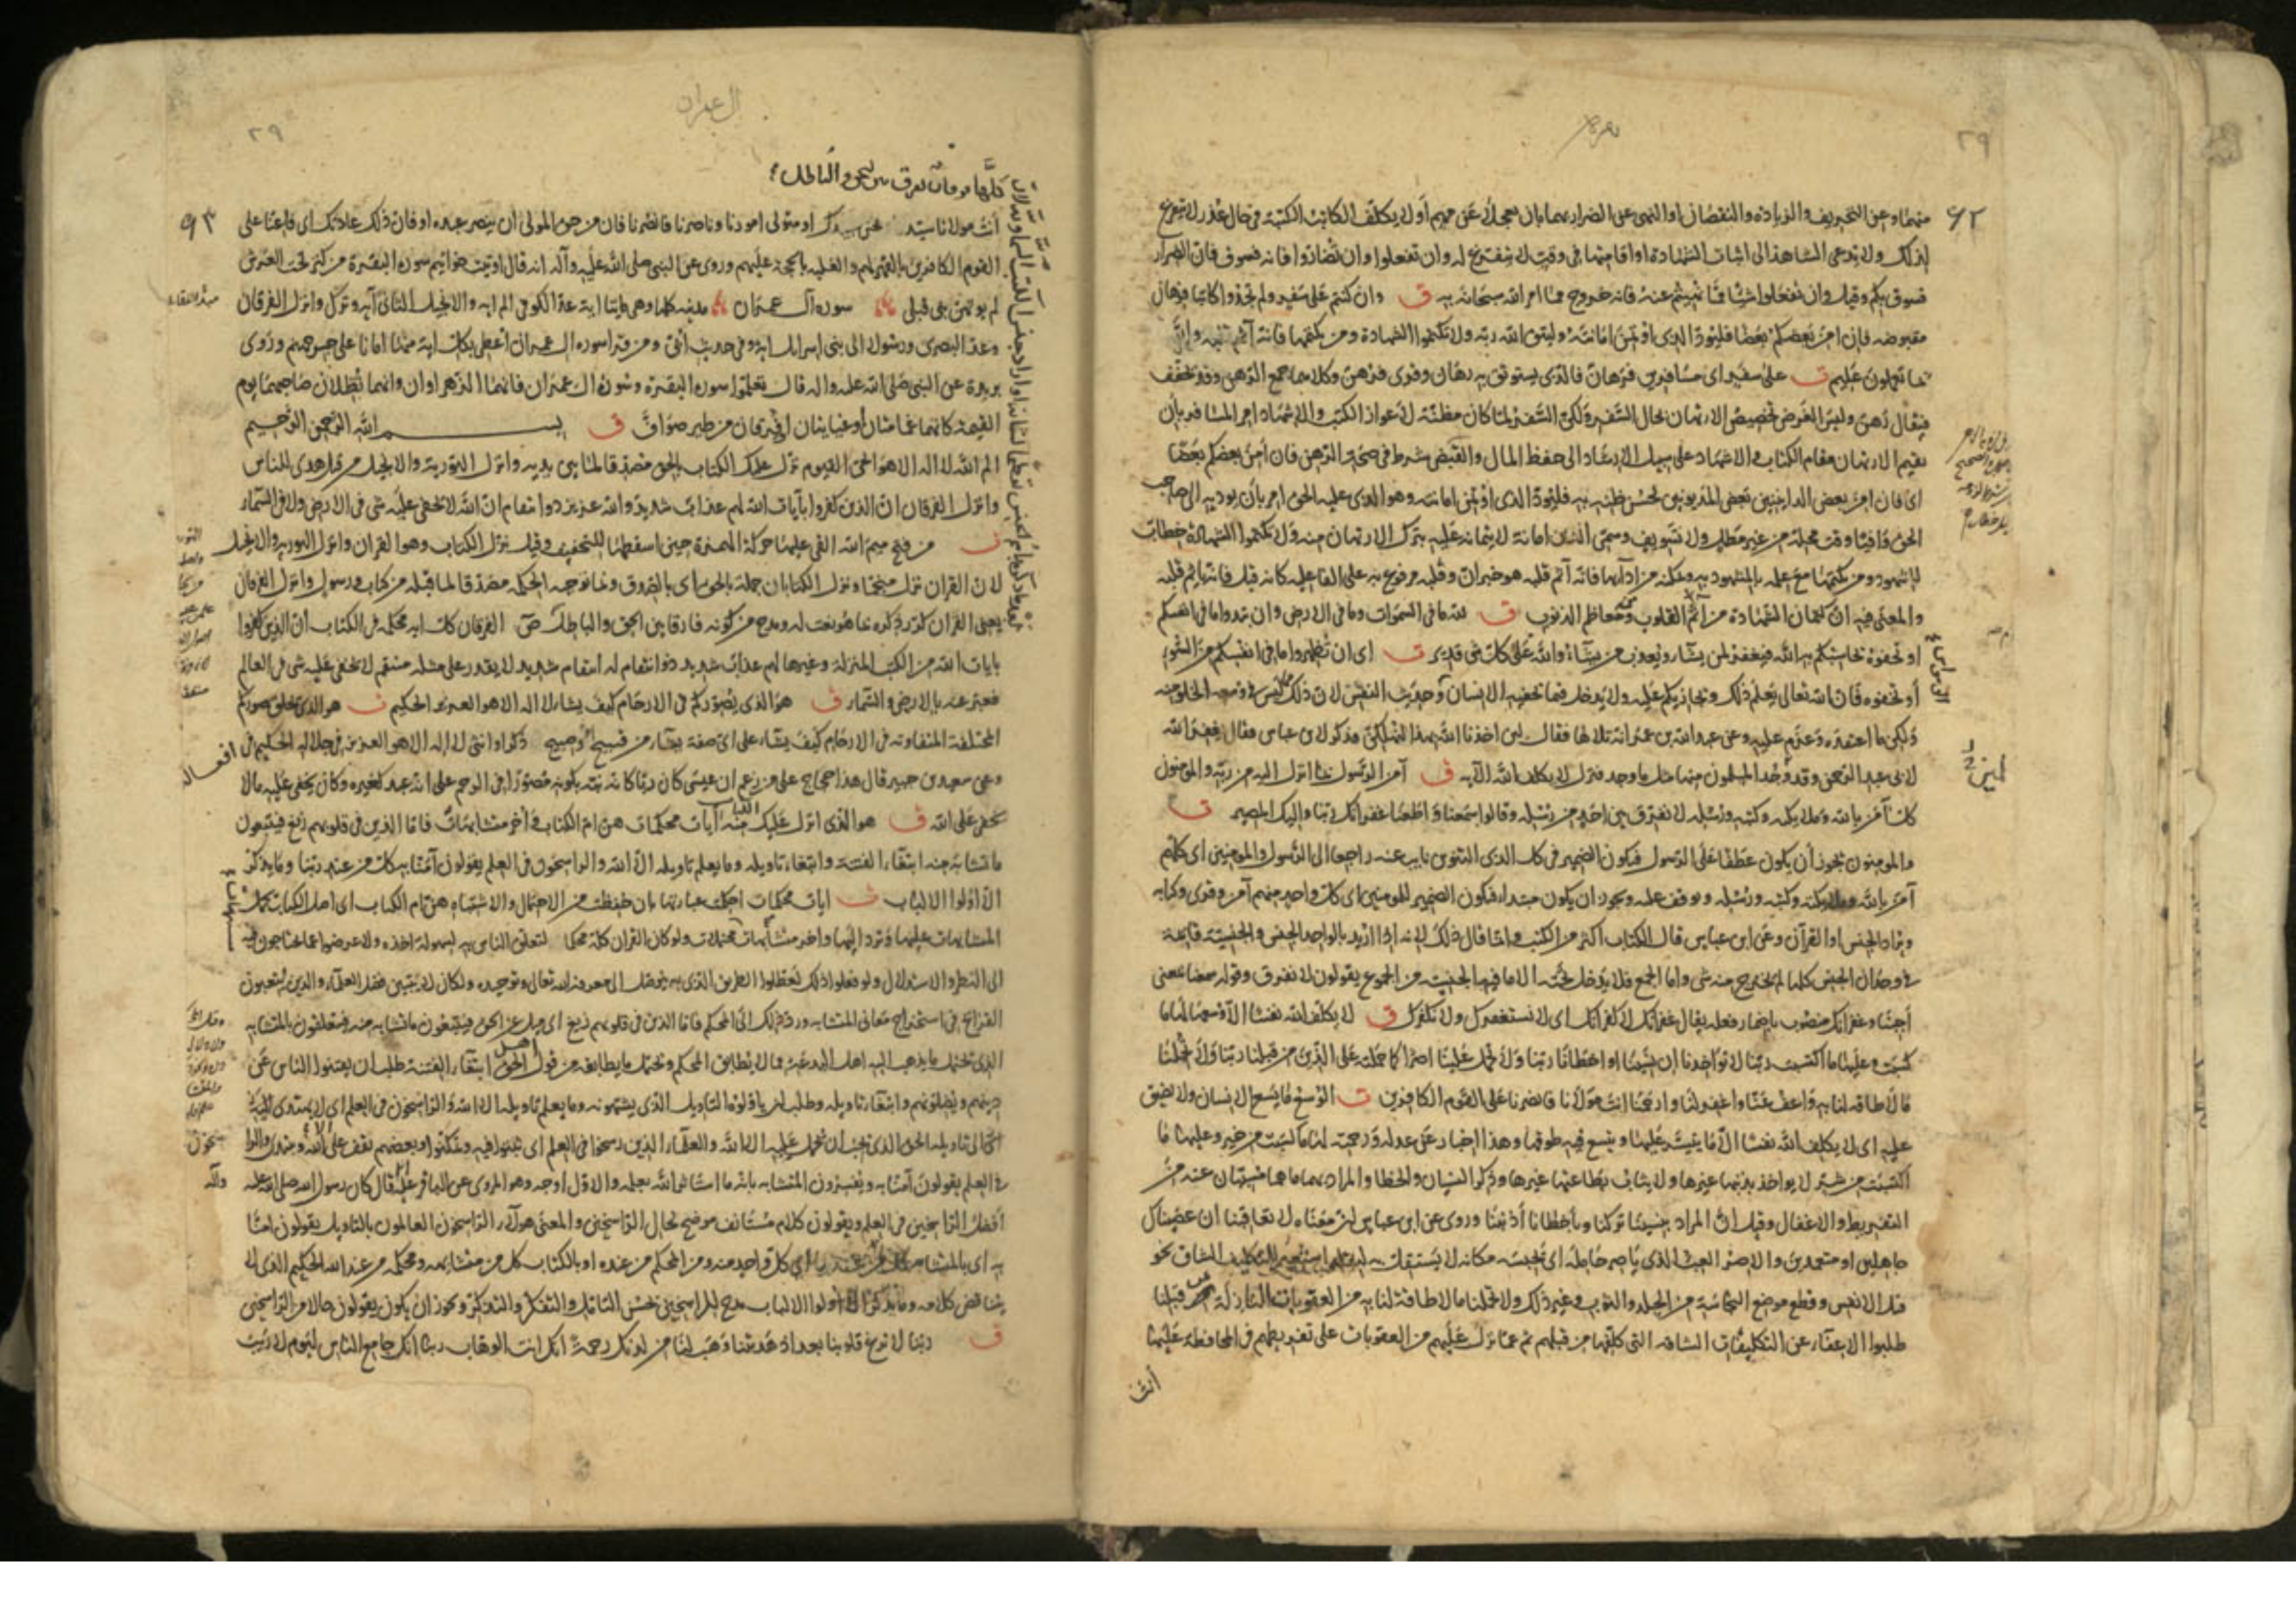 ٢٩
بقره
٩٢
منهما وعن التحريف والزيادة والنقصان او النهي عن الضرار بهما بان يعجلا عن مهم أو لا يكلف الكاتب الكتبة في حال عذر لا يتفرغ
لذلك ولا يدعى الشاهد الى اثبات الشهادة او اقامتها في وقت لا يتفرغ له وان تفعلوا وان تضاروا فانه فسوق فان الضرار
فسوق بكم وقيل وان تفعلوا شيئا مما نهيتم عنه فانه خروج عما امر الله سبحانه به ق وان كنتم على سفر ولم تجدوا كاتبا فرهان
مقبوضه فان امن بعضكم بعضا فليؤد الذي اؤتمن امانته وليتق الله ربه ولا تكتموا الشهادة ومن يكتمها فانه آثم قلبه والله
بما تعملون عليم ت على سفر اى مسافرين فرهان فالذى يستوثق به رهان وقرى فرهن وكلاهما جمع الرهن وقد تخفف
فيقال رهن وليس الغرض تخصيص الارتهان بحال السفر ولكن السفر لما كان مظنة لاعواز الكتب والاشهاد امر المسافر بأن
يقيم الارتهان مقام الكتاب والاشهاد على سبيل الارشاد الى حفظ المال والقبض شرط في صحة الرهن فان أمن بعضكم بعضا
اى فان امن بعض الداينين بعض المديونين لحسن ظنه به فليؤد الذى اؤتمن امانته وهو الذى عليه الحق امر بأن يؤديه الى صاحب
الحق وافيا وقت محله من غير مطل ولا تسويف وسمى الدين امانة لايتمانه عليه بترك الارتهان منه ولا تكتموا الشهادة خطاب
للشهود ومن يكتمها مع علمه بالمشهود به وتمكنه من ادآيها فانه آثم قلبه هو خبر ان وقلبه مرفوع به على الفاعليه كانه قيل فانه ياثم قلبه
والمعنى فيه ان كتمان الشهادة من آثام القلوب ومن معاظم الذنوب ق لله ما في السموات وما في الارض وان تبدوا ما في انفسكم
او تخفوه يحاسبكم به الله فيغفر لمن يشآء ويعذب من يشآء والله على كل شى قدير ت اى ان تظهروا ما في انفسكم من السوء
أو تخفوه فان الله تعالى يعلم ذلك ويجازيكم عليه ولا يدخل فيما تخفيه الانسان وحديث النفس لان ذلك مما ليس في وسعه الخلو منه
ولكن ما اعتقده وعزم عليه وعن عبدالله بن عمر انه تلاها فقال لئن اخذنا الله بهذا لنهلكن فذكر لابن عباس فقال يغفر الله
لابى عبد الرحمن وقد وجد المسلمون منها مثل ما وجد فنزل لا يكلف الله الآيه ق آمن الرسول بما انزل اليه من ربه والمومنون
كل آمن بالله وملائكته وكتبه ورسله لا نفرق بين احد من رسله وقالوا سمعنا واطعنا غفرانك ربنا واليك المصير ت
والمومنون يجوز أن يكون عطفا على الرسول فيكون الضمير في كل الذى التنوين نايب عنه راجعا الى الرسول والمومنين اى كلهم
آمن بالله وملائكته وكتبه ورسله ويوقف عليه ويجوز ان يكون مبتدا فيكون الضمير للمومنين اى كل واحد منهم آمن وقرى وكتابه
ويراد الجنس او القرآن وعن ابن عباس قال الكتاب اكثر من الكتب وانما قال ذلك لانه اذا اريد بالواحد الجنس والجنسية قايمة
في وحدان الجنس كلها لم يخرج منه شى واما الجمع فلا يدخل تحته الا ما فيه الجنسية من الجموع يقولون لا نفرق وقوله سمعنا بمعنى
أجبنا وغفرانك منصوب باضمار فعله يقال غفرانك لا كفرانك اى لا نستغفرك ولا نكفرك ق لا يكلف الله نفسا الا وسعها لها ما
كسبت وعليها ما اكتسبت ربنا لا تؤاخذنا ان نسينا او اخطانا ربنا ولا تحمل علينا اصرا كما حملته على الذين من قبلنا ربنا ولا تحملنا
ما لا طاقة لنا به واعف عنا واغفر لنا وارحمنا انت مولانا فانصرنا على القوم الكافرين ت الوسع ما يسع الانسان ولا يضيق
عليه اى لا يكلف الله نفسا الا ما يتيسر عليها ويتسع فيه طوقها وهذا اخبار عن عدله ورحمته لها ما كسبت من خير وعليها ما
اكتسبت من شر لا يواخذ بذنبها غيرها ولا يثاب بطاعتها غيرها وذكر النسيان والخطا والمراد بهما ما هما مسببان عنه من
التفريط والاغفال وقيل ان المراد بنسينا تركنا وبأخطانا أذنبنا وروى عن ابن عباس ان معناه لا تعاقبنا ان عصيناك
جاهلين او متعمدين والاصر العبء الذى ياصر حامله اى يحبسه مكانه لا يستقل به لثقله استعير للتكليف الشاق نحو
قتل الانفس وقطع موضع النجاسة من الجلد والثوب وغير ذلك ولا تحملنا ما لا طاقة لنا به من العقوبات النازلة بمن قبلنا
طلبوا الاعفاء عن التكليفات الشاقه التى كلفها من قبلهم ثم عما نزل عليهم من العقوبات على تفريطهم في المحافظة عليها
أنت
٢٩
ال عمران
٩٣
أنت مولانا سيدنا ونحن عبيدك او متولى امورنا وناصرنا فانصرنا فان من حق المولى ان ينصر عبده او فان ذلك عادتك اى فاعنا على
القوم الكافرين بالقهر لهم والغلبه بالحجة عليهم وروى عن النبي صلى الله عليه وآله انه قال اوتيت خواتيم سورة البقرة من كنز تحت العرش
لم يؤتهن نبى قبلى سوره آل عمران مدنيه كلها وهى مايتا اية عد الكوفى الم ايه والانجيل الثانى آيه وترك وانزل الفرقان
وعد البصرى ورسولا الى بنى اسرايل اية وفى حديث أبى ومن قرا سوره ال عمران أعطى بكل اية منها امانا على جسر جهنم وروى
بريدة عن النبي صلى الله عليه واله قال تعلموا سورة البقرة وسورة ال عمران فانهما الزهراوان وانهما تظلان صاحبهما يوم
القيمة كانهما غمامتان أو غيايتان او فرقان من طير صواف ق بســــم الله الرحمن الرحيم
الم الله لا اله الا هو الحى القيوم نزل عليك الكتاب بالحق مصدقا لما بين يديه وانزل التورية والانجيل من قبل هدى للناس
وانزل الفرقان ان الذين كفروا بآيات الله لهم عذاب شديد والله عزيز ذوا نتقام ان الله لا تخفى عليه شى في الارض ولا في السمآء
ت من فتح ميم الله القى عليها حركة الهمزة حين اسقطها للتخفيف وقيل نزل الكتاب وهو القران وانزل التورية والانجيل
لان القران نزل منجما ونزل الكتابان جملة بالحق اى بالصدق وبما توجبه الحكمة مصدقا لما قبله من كتاب ورسول وانزل الفرقان
يعنى القران كرر ذكره بما هو نعت له ومدح من كونه فارقا بين الحق والباطل
بايات الله من الكتب المنزلة وغيرها لهم عذاب شديد ذو انتقام له انتقام شديد لا يقدر على مثله منتقم لا يخفى عليه شى في العالم
فعبر عنه بالارض والسمآء ق هو الذى يصوركم في الارحام كيف يشاء لا اله الا هو العزيز الحكيم ت هو الذى يخلق صوركم
المختلفة المتفاوته في الارحام كيف يشآء على اى صفة يشآء من قبيح وصبيح ذكرا وانثى لا اله الا هو العزيز في جلاله الحكيم في افعاله
وعن سعيد بن جبير قال هذا حجاج على من زعم ان عيسى كان ربا كانه نبه بكونه مصورا في الرحم على انه عبد كغيره وكان يخفى عليه مالا
يخفى على الله ق هو الذى انزل عليك الكتاب منه آيات محكمات هن ام الكتاب وأخر متشابهات فاما الذين في قلوبهم زيغ فيتبعون
ما تشابه منه ابتغاء الفتنة وابتغاء تاويله وما يعلم تاويله الا الله والراسخون في العلم يقولون آمنا به كل من عند ربنا وما يذكر
الا اولوا الالباب ت ايات محكمات احكمت عبارتها بان حفظت من الاحتمال والاشتباه هن ام الكتاب اى اصل الكتاب تحمل
المتشابهات عليها وترد اليها واخر متشابهات محتملات ولو كان القران كله محكما لتعلق الناس به لسهولة اخذه ولاعرضوا عما يحتاجون فيه
الى النظر والاستدلال ولو فعلوا ذلك لعطلوا الطريق الذى به يتوصل الى معرفة الله تعالى وتوحيده ولكان لا يتبين فضل العلماء والذين يتعبون
القرائح في استخراج معانى المتشابه ورد ذلك الى المحكم فاما الذين في قلوبهم زيغ اى ميل عن الحق فيتبعون ما تشابه منه فيتعلقون بالمتشابه
الذى يحتمل ما يذهب اليه اهل البدعة مما لا يطابق المحكم ويحتمل ما يطابقه من قول اهل الحق ابتغاء الفتنة طلب ان يفتنوا الناس عن
دينهم ويضلوهم وابتغاء تاويله وطلب ان ياولوه التاويل الذى يشتهونه وما يعلم تاويله الا الله والراسخون في العلم اى لا يهتدى
الى تاويله الحق الذى يجب ان يحمل عليه الا الله والعلماء الذين رسخوا في العلم اى ثبتوا فيه وتمكنوا وبعضهم يقف على الا الله ويبتدى والراسخون
في العلم يقولون آمنا به ويفسرون المتشابه بانه ما استاثر الله بعلمه والاول اوجه وهو المروى عن الباقر عليه قال كان رسول الله صلى الله عليه وآله
أفضل الراسخين في العلم ويقولون كلام مستانف موضح لحال الراسخين والمعنى هولاء الراسخون العالمون بالتاويل يقولون امنا
به اى بالمتشابه كل من عند ربنا اى كل واحد منه ومن المحكم من عنده او بالكتاب كل من متشابهه ومحكمه من عند الله الحكيم الذى لا
يتناقض كلامه وما يذكر الا اولوا الالباب مدح للراسخين بحسن التامل والتفكر والتذكر ويجوز ان يكون يقولون حالا من الراسخين
ق ربنا لا تزغ قلوبنا بعد اذ هديتنا وهب لنا من لدنك رحمة انك انت الوهاب ربنا انك جامع الناس ليوم لا ريب